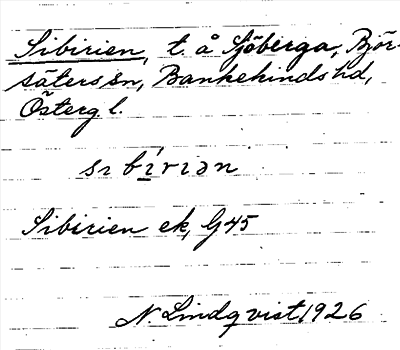 Sibirien, t. å Sjöberga, Björ-
säters sn, Bankekinds hd,
Österg. l.
sıbírıən
Sibirien ek, G45
N Lindqvist 1926